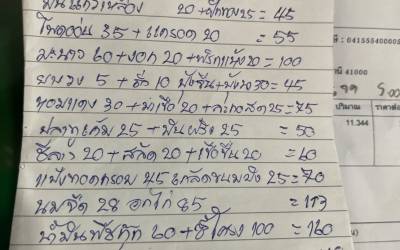 มันแกวเหลือง 20+ฟักทอง25 = 45
โพดอ่อน 35 + แครอต 20 = 55
มะนาว 60+งอก 20+พริกแห้ง20 = 100
5 + 10 30 = 45
หอมแดง 30 + มะเขือ 20 + สด25 = 75
ปลาทูเค็ม 25 + มันฝรั่ง 25 = 50
ชีลาว 20 + สลัด 20 + เขือขื่น 20 = 60
แป้งทอดกรอบ 45 เกล็ดขนมปัง 25 = 70
นมจืด 28 อกไก่ 85 = 113
น้ำมันพืชกุ๊ก 60 + ซี่โครง 100 = 160
: 041555400005
41000
ปริมาณ ราคาต่อ
11.344